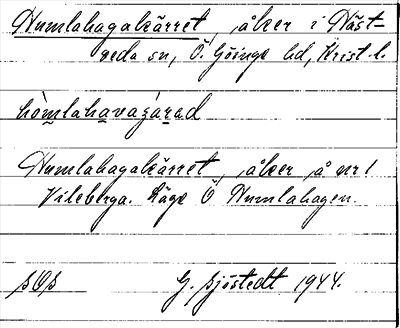 Humlahagakärret, åker i Näst-
veda sn, Ö. Göinge hd, Krist. l.
Humlahagakärret, åker å nr 1
Vileberga. Läge Ö Humlahagen.
G. Sjöstedt 1944.